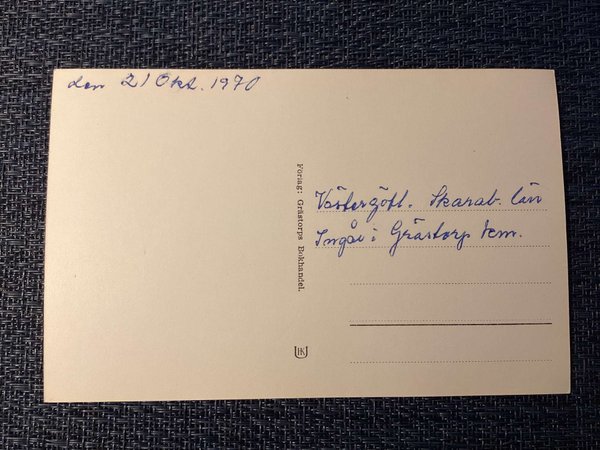 den 21 Okt. 1970
Förlag: Grästorps Bokhandel.
Västergötl. Skarab. län
Ingår i Grästorp kom.